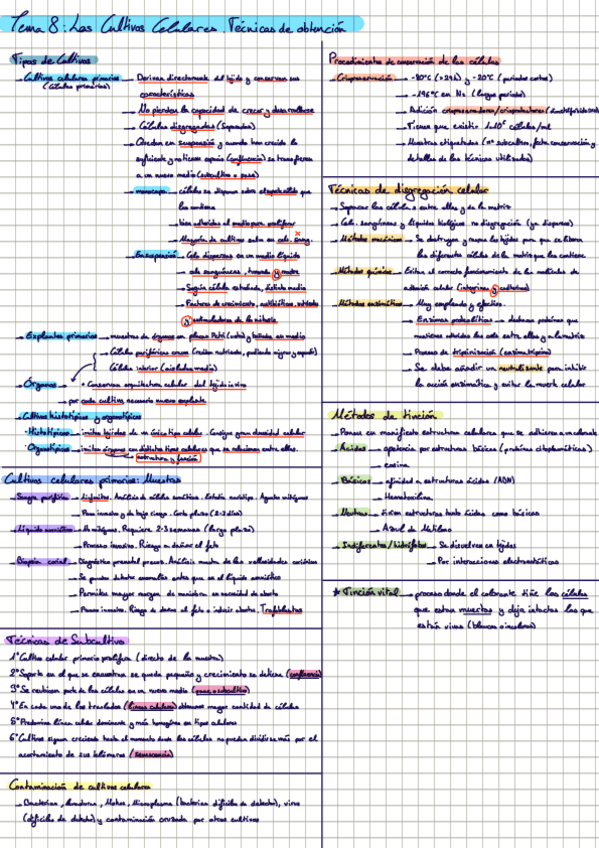 Tema 8: Los Cultivos Celulares. Técnicas de obtención
Tipos de Cultivos
- Cultivos celulares primarios → Derivan directamente del tejido y conservan sus
(Células primarias)
características
→ No pierden la capacidad de crecer y desarrollarse
→ Células disgregadas (separadas)
→ Quedan en suspensión y cuando han crecido lo
suficiente y no tienen espacio (confluencia) se transfieren
a un nuevo medio (subcultivo o pase)
→ monocapa → células se disponen sobre el
las contiene
→ bien adheridas al medio para proliferar
→ Mayoría de cultivos salvo en cels. sang.
→ En suspensión → Cels dispersas en un medio líquido
→ cels sanguíneas, 
→ Según célula estudiada, distinto medio
→ Factores de crecimiento, antibióticos,
y estimuladores de la mitosis
- Explantes primarios → muestras de órganos en placa Petri
→ Células periféricas crecen
Células interior (aisladas medio)
- Órganos → + Conservan arquitectura celular del tejido in vivo
→ por cada cultivo necesario nuevo explante
- Cultivos histotípicos y organotípicos
· Histotípicos → imita tejidos de un único tipo celular. Consigue gran densidad celular
· Organotípicos → imitan órganos con distintos tipos celulares que se relacionan entre ellos.
→ estructura y función
Cultivos celulares primarios: Muestras
- Sangre periférica → linfocitos. Análisis de células somáticas. Estudio cariotipo. Agente mitógeno
→ Poco invasivo y de bajo riesgo. Corto plazo (2-3 días)
- Líquido amniótico → No mitógenos. Requiere 2-3 semanas (largo plazo)
→ Proceso invasivo. Riesgo de dañar el feto
- Biopsia corial → Diagnóstico prenatal precoz. Análisis muestra de las vellosidades coriónicas
→ Se pueden detectar anomalías antes que en el líquido amniótico
→ Permite mayor margen de maniobra en necesidad de aborto
→ Proceso invasivo. Riesgo de daños al feto o inducir aborto. Trofoblastos
Técnicas de Subcultivo
1º Cultivo celular primario prolifera (directo de la muestra)
2º Soporte en el que se encuentra se queda pequeño y crecimiento se detiene (confluencia)
3º Se resiembran parte de las células en un nuevo medio (pase o subcultivo)
4º En cada uno de los traslados (líneas celulares) obtenemos mayor cantidad de células
5º Predomina línea celular dominante y más homogénea en tipos celulares
6º Cultivos siguen creciendo hasta el momento donde las células no puedan dividirse más por el
acortamiento de sus telómeros (senescencia)
Contaminación de cultivos celulares
→ Bacterias, levaduras, Mohos, Micoplasma (bacterias difíciles de detectar), virus
(difíciles de detectar) y contaminación cruzada por otros cultivos
Procedimientos de conservación de las células
- Criopreservación → -80ºC (>24h) y -20ºC (periodos cortos)
→ -196ºC en N₂ (largos periodos)
→ Adición crioconservadores/crioprotectores
→ Tiene que existir 1·10⁶ células/ml
→ Muestras etiquetadas (nº subcultivo, fecha conservación y
detalles de las técnicas utilizadas)
Técnicas de disgregación celular
→ Separar las células entre ellas y de la matriz
→ Cels. sanguíneas y líquidos biológicos no disgregación (ya dispersas)
→ Métodos mecánicos → Se destruyen y rompen los tejidos para que se liberen
las diferentes células de la matriz que las contiene
→ Métodos químicos → Evitan el correcto funcionamiento de las moléculas de
adhesión celular (integrinas y cadherinas)
→ Métodos enzimáticos → Muy empleado y efectivo.
→ Enzimas proteolíticas → deshacen proteínas que
mantienen unidas las cels entre ellas y a la matriz
→ Proceso de tripsinización (enzima tripsina)
→ Se debe añadir un neutralizante para inhibir
la acción enzimática y evitar la muerte celular
Métodos de tinción
→ Ponen en manifiesto estructuras celulares que se adhieren
→ Ácidos → apetencia por estructuras básicas (proteínas citoplasmáticas)
→ eosina
→ Básicos → afinidad a estructuras ácidas (ADN)
→ Hematoxilina
→ Neutros → tiñen estructuras tanto ácidas como básicas
→ Azul de Metileno
→ Indiferentes/hidrófobos → Se disuelven en tejidos
→ Por interacciones electrostáticas
* Tinción vital → proceso donde el colorante tiñe las células
que están muertas y deja intactas las que
están vivas